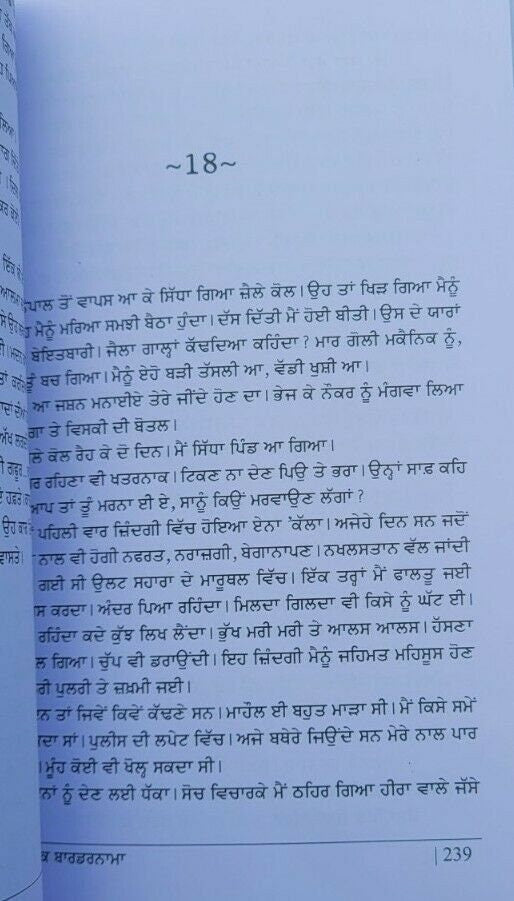 ~18~
ਪਾਲ ਤੋਂ ਵਾਪਸ ਆ ਕੇ ਸਿੱਧਾ ਗਿਆ ਜ਼ੈਲੇ ਕੋਲ। ਉਹ ਤਾਂ ਖਿੜ ਗਿਆ ਮੈਨੂੰ
ਮੈਨੂੰ ਮਰਿਆ ਸਮਝੀ ਬੈਠਾ ਹੁੰਦਾ। ਦੱਸ ਦਿੱਤੀ ਮੈਂ ਹੋਈ ਬੀਤੀ। ਉਸ ਦੇ ਯਾਰਾਂ
ਬੇਇਤਬਾਰੀ। ਜੈਲਾ ਗਾਲ੍ਹਾਂ ਕੱਢਦਿਆ ਕਹਿੰਦਾ? ਮਾਰ ਗੋਲੀ ਮਕੈਨਿਕ ਨੂੰ,
ਤੂੰ ਬਚ ਗਿਆ। ਮੈਨੂੰ ਏਹੋ ਬੜੀ ਤੱਸਲੀ ਆ, ਵੱਡੀ ਖੁਸ਼ੀ ਆ।
ਆ ਜਸ਼ਨ ਮਨਾਈਏ ਤੇਰੇ ਜੀਂਦੇ ਹੋਣ ਦਾ। ਭੇਜ ਕੇ ਨੌਕਰ ਨੂੰ ਮੰਗਵਾ ਲਿਆ
ਗਾ ਤੇ ਵਿਸਕੀ ਦੀ ਬੋਤਲ।
ਲੇ ਕੋਲ ਰੈਹ ਕੇ ਦੋ ਦਿਨ। ਮੈਂ ਸਿੱਧਾ ਪਿੰਡ ਆ ਗਿਆ।
ਰ ਰਹਿਣਾ ਵੀ ਖਤਰਨਾਕ। ਟਿਕਣ ਨਾ ਦੇਣ ਪਿਉ ਤੇ ਭਰਾ। ਉਨ੍ਹਾਂ ਸਾਫ਼ ਕਹਿ
ਆਪ ਤਾਂ ਤੂੰ ਮਰਨਾ ਈ ਏ, ਸਾਨੂੰ ਕਿਉਂ ਮਰਵਾਉਣ ਲੱਗਾਂ?
ਪਹਿਲੀ ਵਾਰ ਜ਼ਿੰਦਗੀ ਵਿੱਚ ਹੋਇਆ ਏਨਾ 'ਕੱਲਾ। ਅਜੇਹੇ ਦਿਨ ਸਨ ਜਦੋਂ
ਨਾਲ ਵੀ ਹੋਗੀ ਨਫਰਤ, ਨਰਾਜ਼ਗੀ, ਬੇਗਾਨਾਪਣ। ਨਖਲਸਤਾਨ ਵੱਲ ਜਾਂਦੀ
ਗਈ ਸੀ ਉਲਟ ਸਹਾਰਾ ਦੇ ਮਾਰੂਥਲ ਵਿੱਚ। ਇੱਕ ਤਰ੍ਹਾਂ ਮੈਂ ਫਾਲਤੂ ਜਈ
ਸ ਕਰਦਾ। ਅੰਦਰ ਪਿਆ ਰਹਿੰਦਾ। ਮਿਲਦਾ ਗਿਲਦਾ ਵੀ ਕਿਸੇ ਨੂੰ ਘੱਟ ਈ।
ਰਹਿੰਦਾ ਕਦੇ ਕੁੱਝ ਲਿਖ ਲੈਂਦਾ। ਭੁੱਖ ਮਰੀ ਮਰੀ ਤੇ ਆਲਸ ਆਲਸ। ਹੱਸਣਾ
ਲ ਗਿਆ। ਚੁੱਪ ਵੀ ਡਰਾਉਂਦੀ। ਇਹ ਜ਼ਿੰਦਗੀ ਮੈਨੂੰ ਜ਼ਹਿਮਤ ਮਹਿਸੂਸ ਹੋਣ
ਰੀ ਪੁਲਰੀ ਤੇ ਜ਼ਖ਼ਮੀ ਜਈ।
ਨ ਤਾਂ ਜਿਵੇਂ ਕਿਵੇਂ ਕੱਢਣੇ ਸਨ। ਮਾਹੌਲ ਈ ਬਹੁਤ ਮਾੜਾ ਸੀ। ਮੈਂ ਕਿਸੇ ਸਮੇਂ
ਦਾ ਸਾਂ। ਪੁਲੀਸ ਦੀ ਲਪੇਟ ਵਿੱਚ। ਅਜੇ ਬਥੇਰੇ ਜਿਉਂਦੇ ਸਨ ਮੇਰੇ ਨਾਲ ਪਾਰ
। ਮੂੰਹ ਕੋਈ ਵੀ ਖੋਲ੍ਹ ਸਕਦਾ ਸੀ।
ਨਾਂ ਨੂੰ ਦੇਣ ਲਈ ਧੱਕਾ। ਸੋਚ ਵਿਚਾਰਕੇ ਮੈਂ ਠਹਿਰ ਗਿਆ ਹੀਰਾ ਵਾਲੇ ਜੱਸੇ
ਕ ਬਾਰਡਰਨਾਮਾ | 239